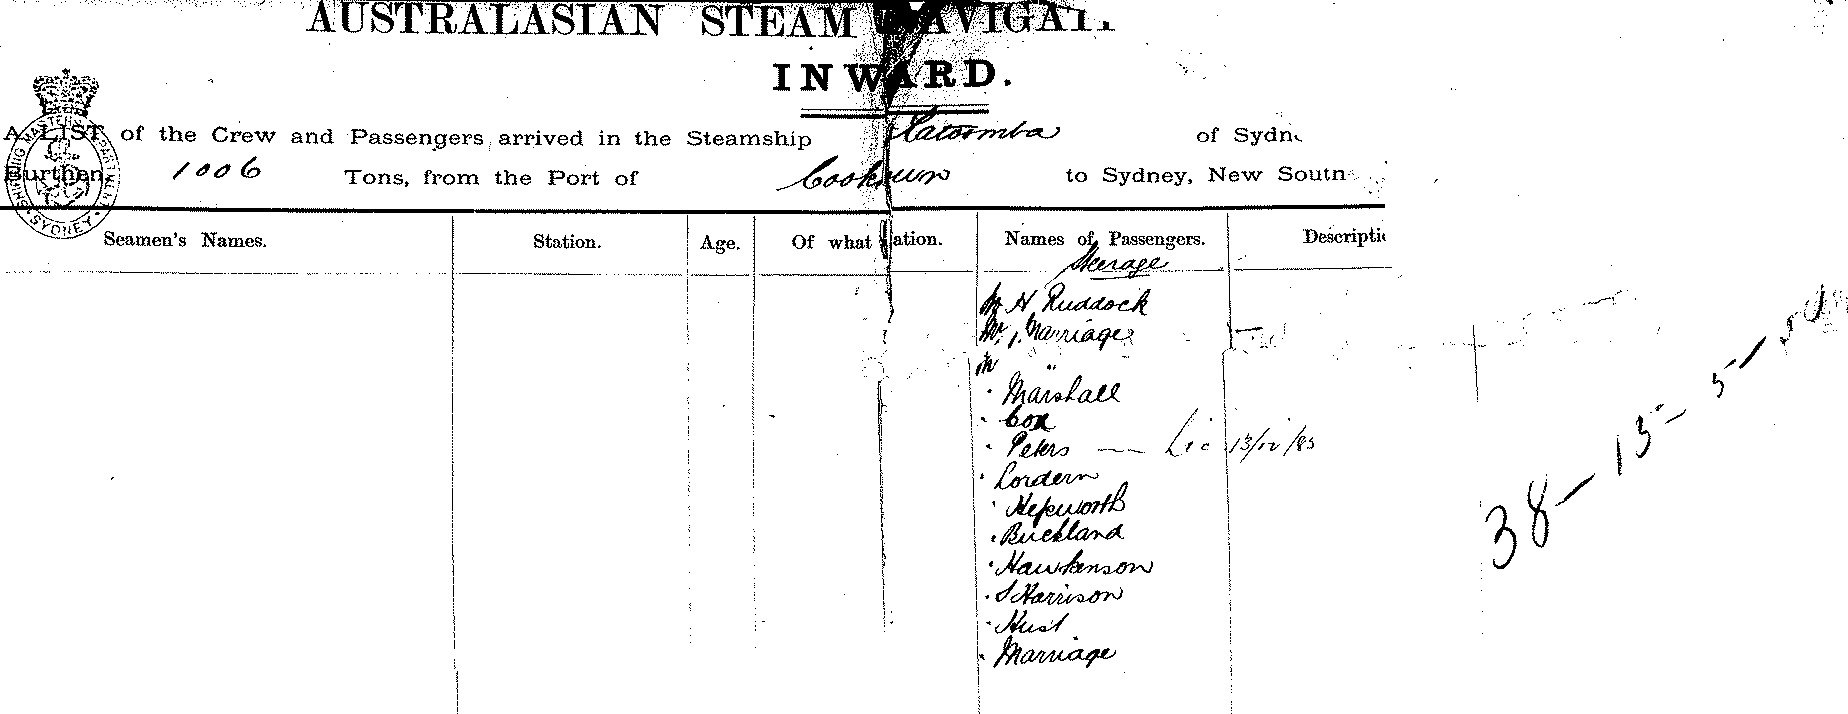 AUSTRALASIAN STEAM NAVIGATI
INWARD.
A LIST of the Crew and Passengers arrived in the Steamship Katoomba of Sydn
Burthen, 1006 Tons, from the Port of Cooktown to Sydney, New South
SHIPPING MASTER'S DEPARTMENT
SYDNEY
Seamen's Names. Station. Age. Of what Nation. Names of Passengers. Descripti
Steerage
Mr H Ruddock
Mr J. Marriage
Mr "
" Marshall
" Cox
" Peters — Lic 13/10/85
" Lordern
" Hepworth
" Buckland
" Hawkenson
" S Harrison
" Hust
" Marriage
38-15-5-1